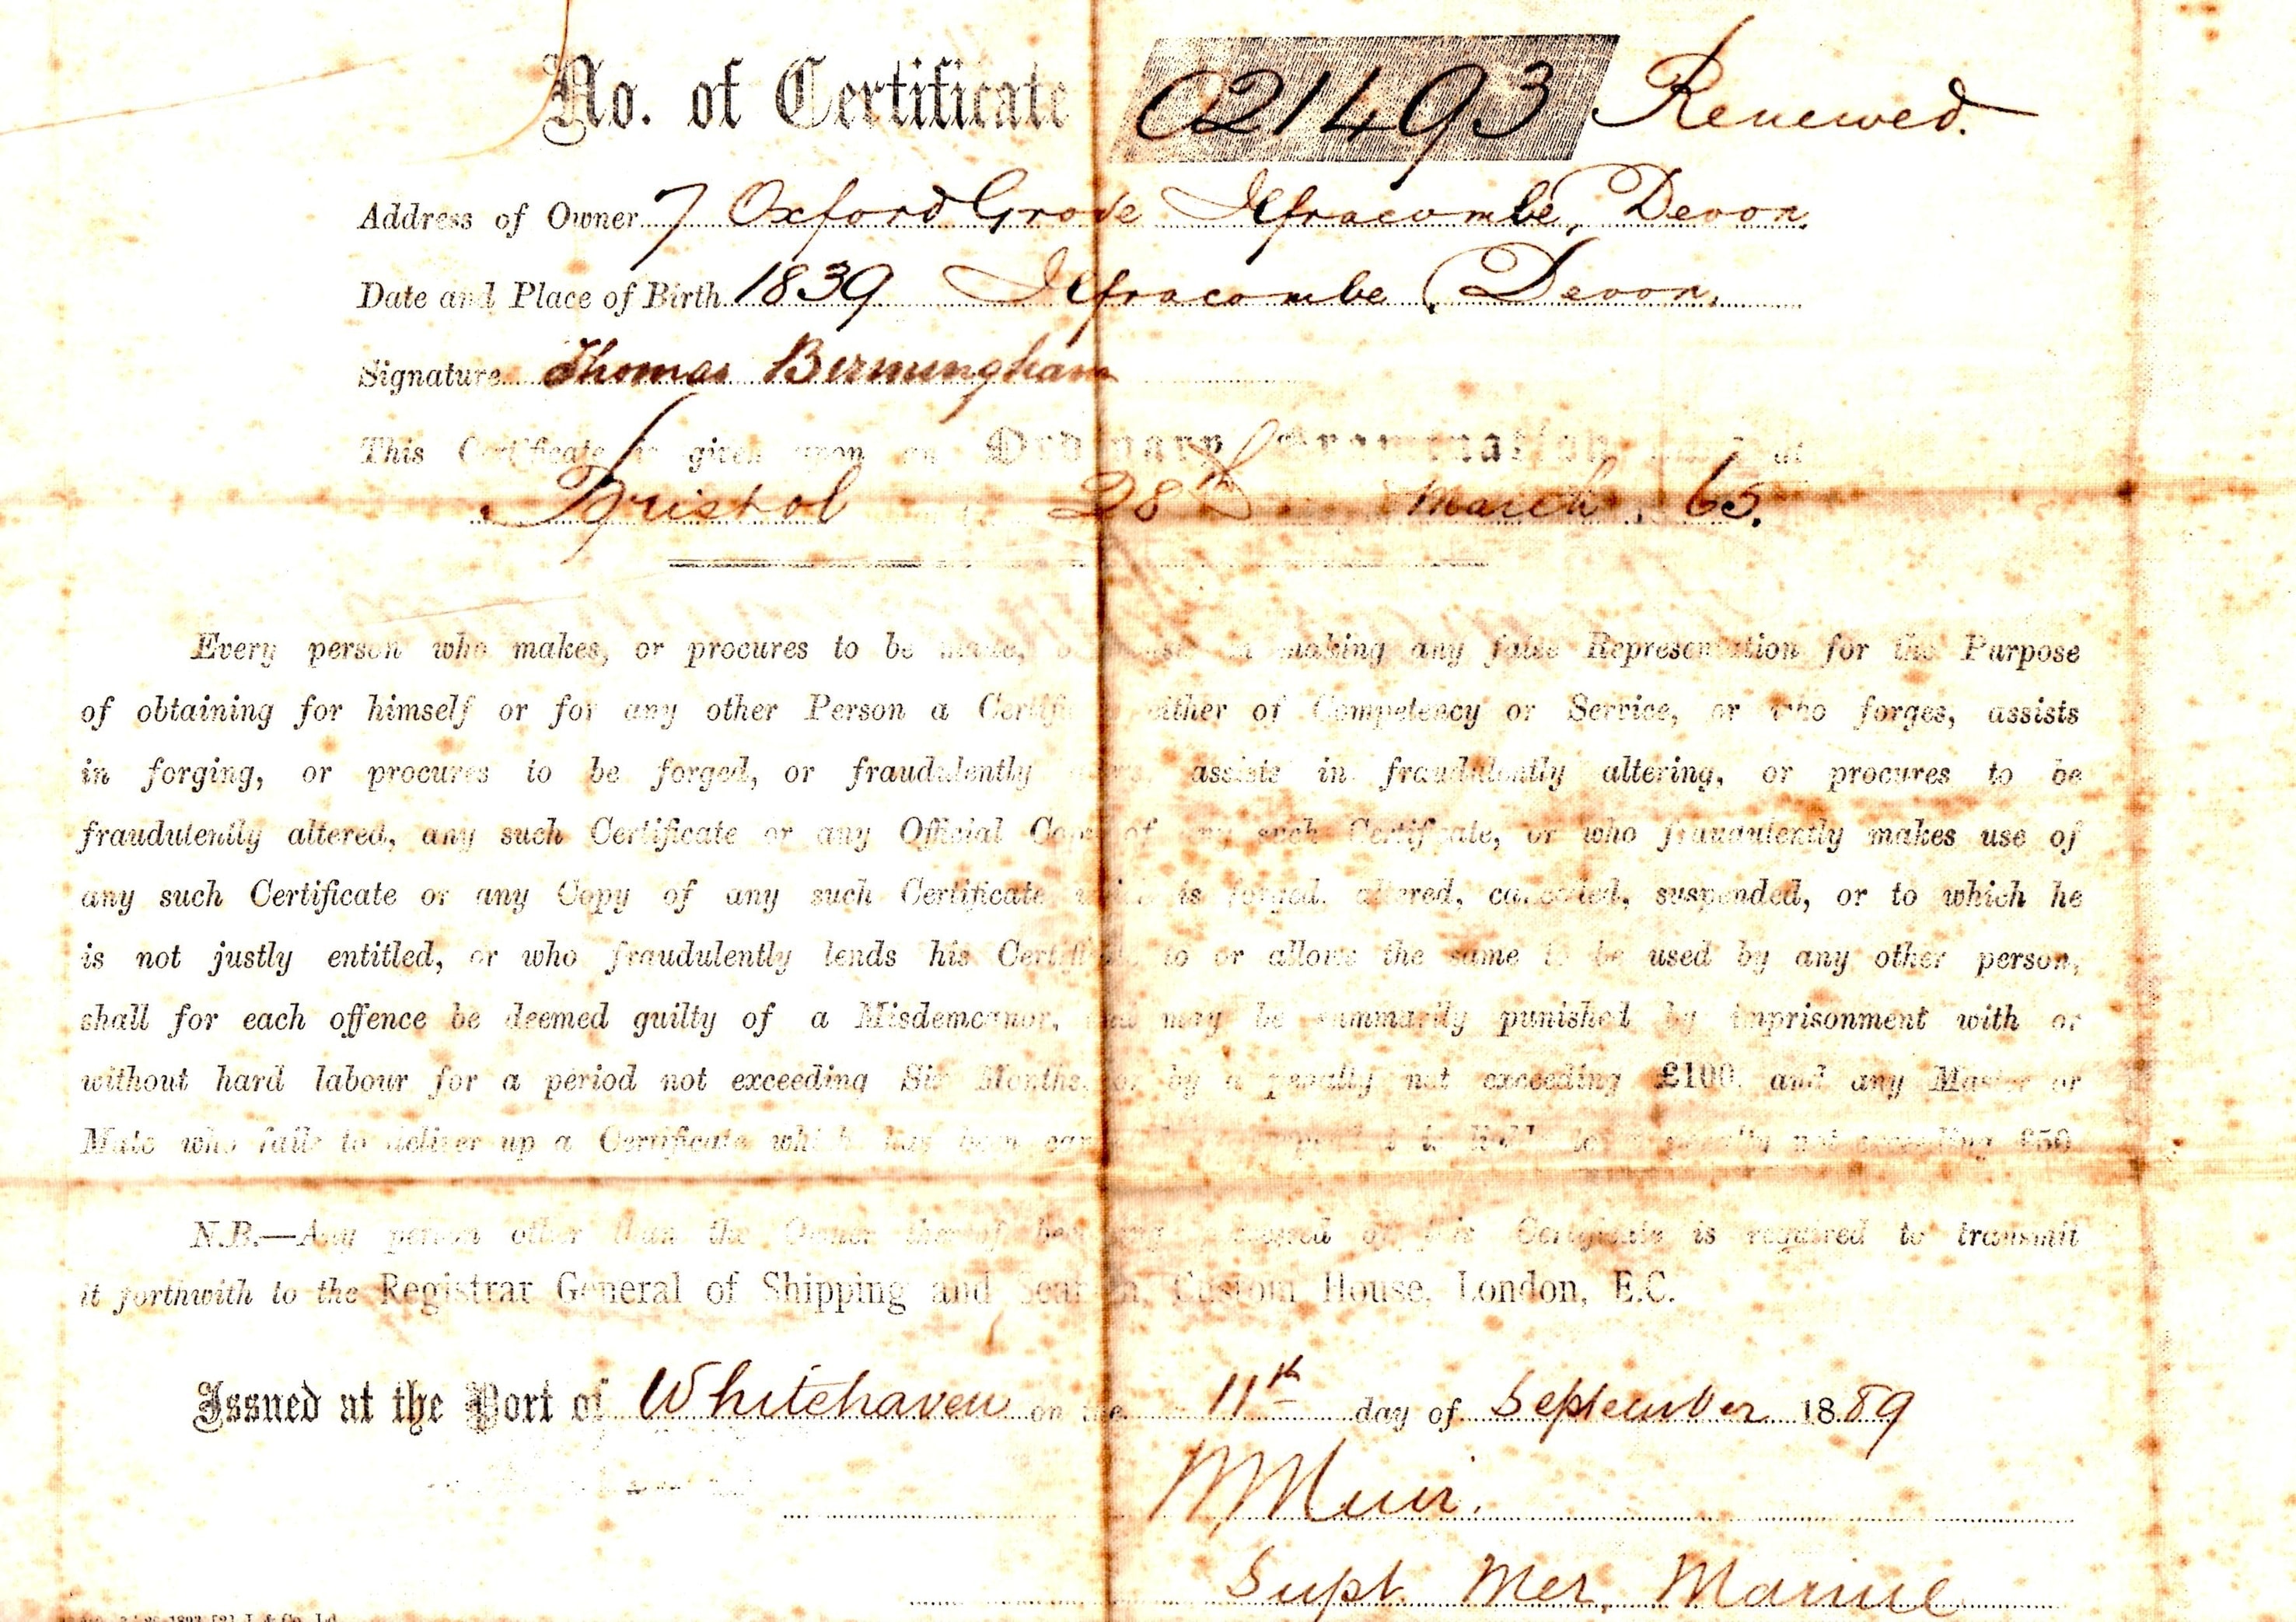 No. of Certificate 021493 Renewed.
Address of Owner 7 Oxford Grove Ilfracombe, Devon.
Date and Place of Birth 1839 Ilfracombe, Devon.
Signature Thomas Bermingham
This Certificate is given upon an Ordinary Examination at
Bristol 28th March, 65.
Every person who makes, or procures to be made, or in making any false Representation for the Purpose
of obtaining for himself or for any other Person a Certificate either of Competency or Service, or who forges, assists
in forging, or procures to be forged, or fraudulently assists in fraudulently altering, or procures to be
fraudulently altered, any such Certificate or any Official Copy of any such Certificate, or who fraudulently makes use of
any such Certificate or any Copy of any such Certificate which is forged, altered, cancelled, suspended, or to which he
is not justly entitled, or who fraudulently lends his Certificate to or allows the same to be used by any other person,
shall for each offence be deemed guilty of a Misdemeanor, and may be summarily punished by imprisonment with or
without hard labour for a period not exceeding Six Months, or by a penalty not exceeding £100, and any Master or
Mate who fails to deliver up a Certificate which has been to a penalty not exceeding £50
N.B.—Any person other than the Owner thereof of this Certificate is required to transmit
it forthwith to the Registrar General of Shipping and Seamen, Custom House, London, E.C.
Issued at the Port of Whitehaven on the 11th day of September 1889
Muir.
Supt. Mer. Marine